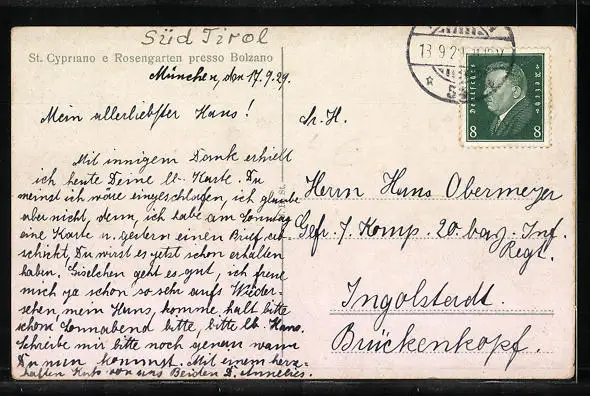 Süd Tirol
St. Cypriano e Rosengarten presso Bolzano
München, den 17.9.29.
Mein allerliebster Hans!
Mit innigem Dank erhielt
ich heute Deine lb. Karte. Du
meinst ich wäre eingeschlafen, ich glaube
aber nicht, denn, ich habe am Sonntag
eine Karte u. gestern einen Brief ge-
schickt, Du wirst es jetzt schon erhalten
haben. Giselchen geht es gut, ich freue
mich ja schon so sehr aufs Wieder-
sehen mein Hans, komme halt bitte
schon Sonnabend bitte, bitte lb. Hans.
Schreibe mir bitte noch genau wann
Du nun kommst. Mit einem herz-
haften Kuß von uns Beiden D. Annelies.
Herrn Hans Obermeyer
Gefr. 7. Komp. 20. bay. Inf.
Regt.
Ingolstadt.
Brückenkopf.
Deutsches Reich
8 8